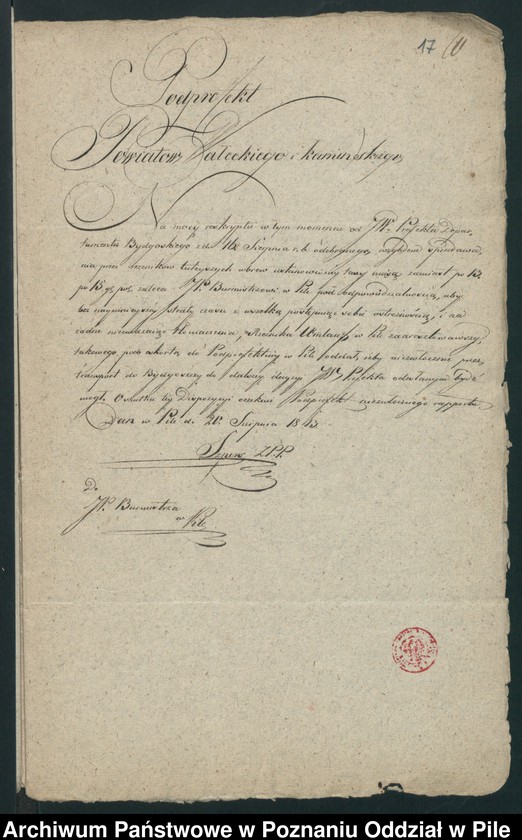 17
Podprefekt
Powiatów Wałeckiego i Kamińskiego
Na mocy reskryptu w tym momencie od JW. Prefekta Depar
tamentu Bydgoskiego z dn. 18 Sierpnia r. b. odebranego, względem sprzedawa
nia przez rzezników tutejszych wbrew ustanowioney taxy mięsa zamiast po 13.
po 15 gr. pol. zaleca JP. Burmistrzowi w Pile pod odpowiedzialnością, aby
bez naymnieyszey straty czasu z wszelką postępując sobie ostrożnością, i na
żadne niezważając tłomaczenia, Rzeźnika w Pile zaaresztowawszy,
takowego pod eskortą do Podprefektury w Pile oddał, żeby niezwłocznie przez
transport do Bydgoszczy do dalszey decyzyi JW. Prefekta odesłanym być
mógł. O skutku tey Dispozycyi oczekuie Podprefekt niezwłocznego rapportu
Dan w Pile d. 20. Sierpnia 18
Z.P.P.
Do
JP. Burmistrza
w Pile
Archiwum Państwowe w Poznaniu Oddział w Pile